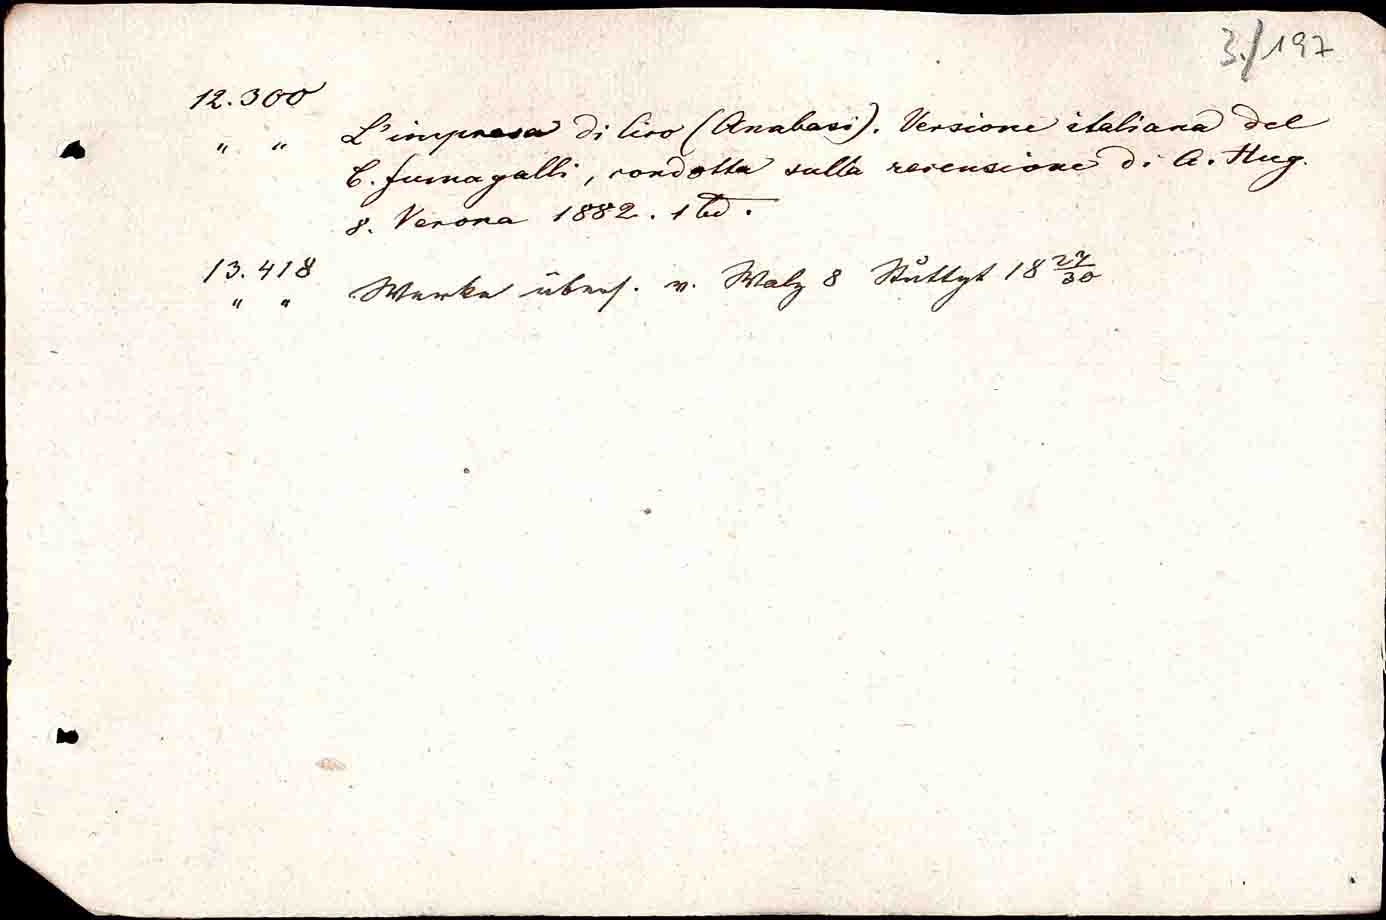 3./197
12.300
" " L'impresa di Ciro (Anabasi). Versione italiana del
C. Fumagalli, condotta sulla recensione di A. Hug.
8. Verona 1882. 1 Bd.
13.418
" " Werke übers. v. Walz 8 Stuttgt 18 27/30